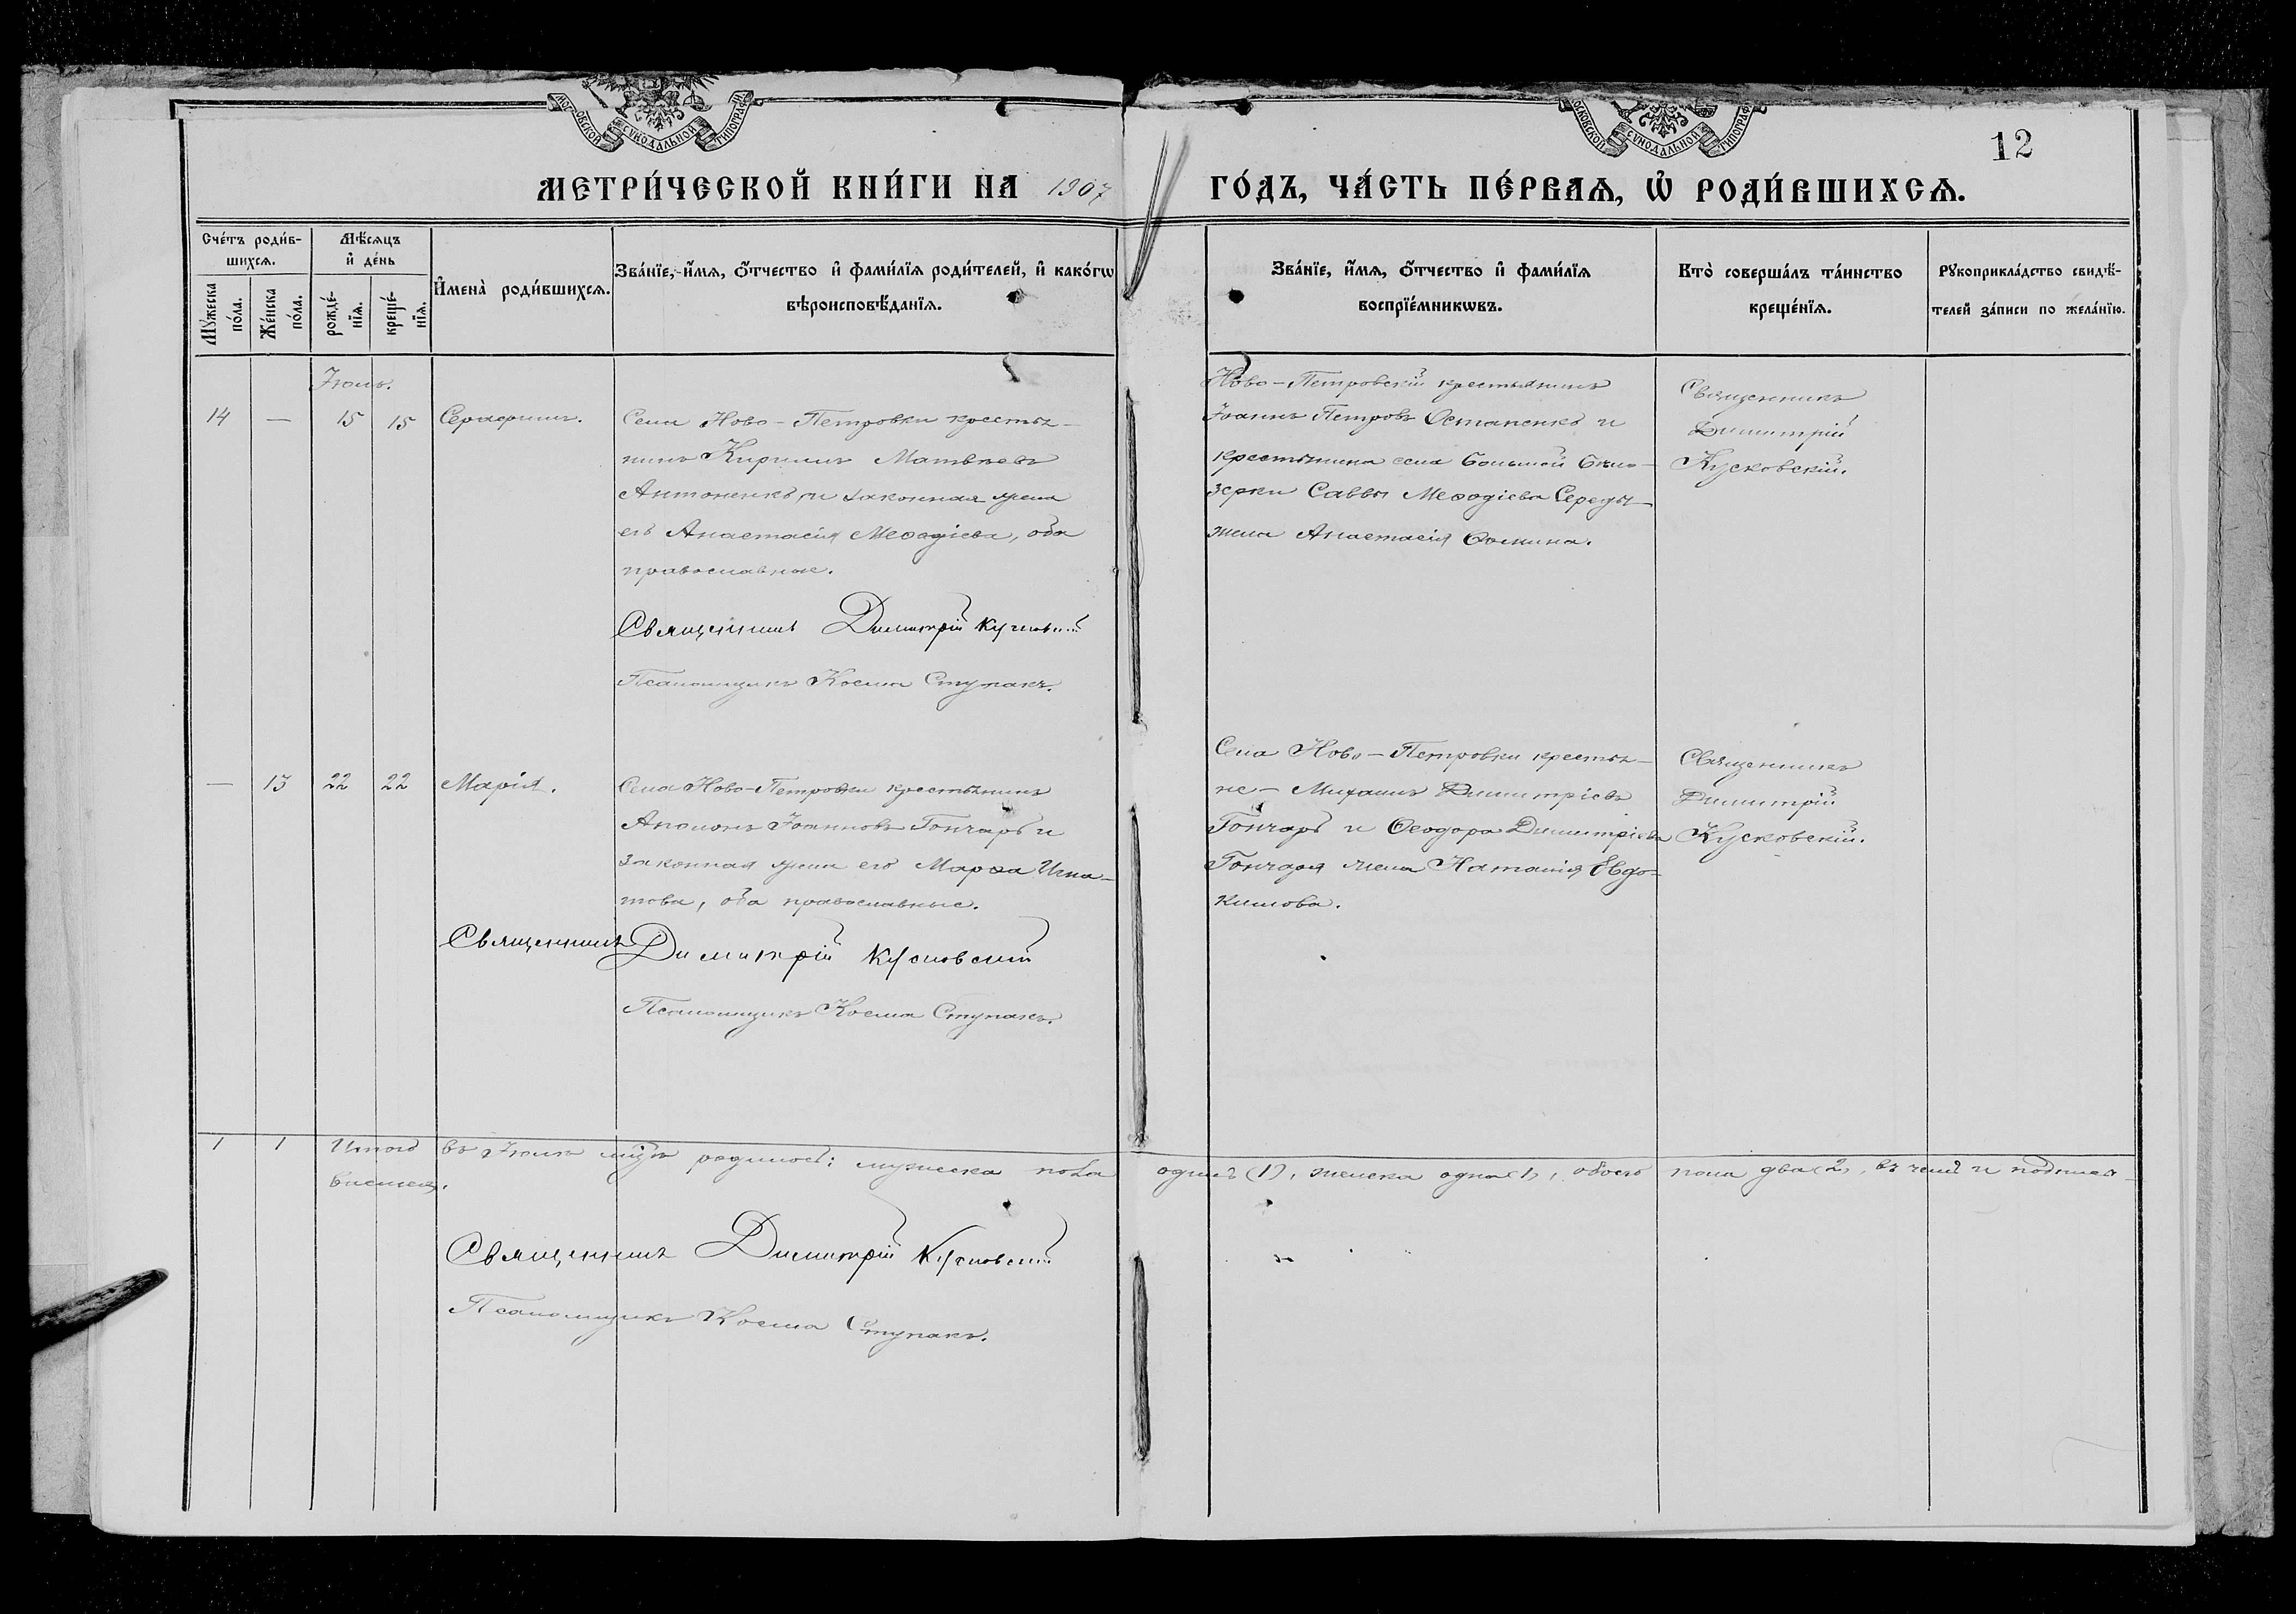 МОСКОВСКОЙ СѴНОДАЛЬНОЙ ТИПОГРАФІИ
МОСКОВСКОЙ СѴНОДАЛЬНОЙ ТИПОГРАФІИ
12
МЕТРИ́ЧЕСКОЙ КНИ́ГИ НА 1907 ГО́ДЪ, ЧА́СТЬ ПЕ́РВАѦ, Ѡ҆ РОДИ́ВШИХСѦ.
Сче́тъ роди́в-
шихсѧ.
Мꙋжеска
по́ла.
Же́нска
по́ла.
Мѣ́сѧцъ
и҆ де́нь
рожде́-
нїѧ.
креще́-
нїѧ.
И҆мена̀ роди́вшихсѧ.
Зва́нїе, и҆́мѧ, ѻ҆́тчество и҆ фами́лїѧ роди́телей, и҆ како́гѡ
вѣроисповѣ́данїѧ.
Зва́нїе, и҆́мѧ, ѻ҆́тчество и҆ фами́лїѧ
воспрїе́мникѡвъ.
Кто̀ соверша́лъ та́инство
креще́нїѧ.
Рꙋкоприкла́дство свидѣ́-
телей за́писи по жела́нїю.
Іюль.
14 — 15 15 Серафимъ.
Села Ново-Петровки крестья-
нинъ Кириллъ Матвѣевъ
Антоненко и законная жена
его Анастасія Меѳодіева, оба
православные.
Священникъ Димитрій Кусковскій
Псаломщикъ Косма Ступакъ.
Ново-Петровскій крестьянинъ
Іоаннъ Петровъ Остапенко и
крестьянина села Большой Бѣло-
зерки Саввы Меѳодіева Середы
жена Анастасія Ѳомина.
Священникъ
Димитрій
Кусковскій.
— 13 22 22 Марія.
Села Ново-Петровки крестьянинъ
Аполонъ Іоанновъ Гончаръ и
законная жена его Марѳа Игна-
това, оба православные.
Священникъ Димитрій Кусковскій
Псаломщикъ Косма Ступакъ.
Села Ново-Петровки крестья-
не - Михаилъ Димитріевъ
Гончаръ и Ѳеодора Димитріева
Гончаря жена Наталія Евдо-
кимова.
Священникъ
Димитрій
Кусковскій.
1 1 Итого въ Іюлѣ мцѣ родилось: мужеска пола одинъ (1), женска одна (1), обоего пола два (2), въ чемъ и подпис-
Священникъ Димитрій Кусковскій
Псаломщикъ Косма Ступакъ.